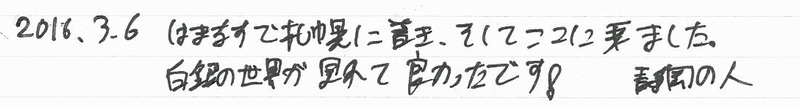 2016、3.6 はまなすで札幌に着き、そしてここに来ました。
白銀の世界が見れて良かったです! 静岡の人